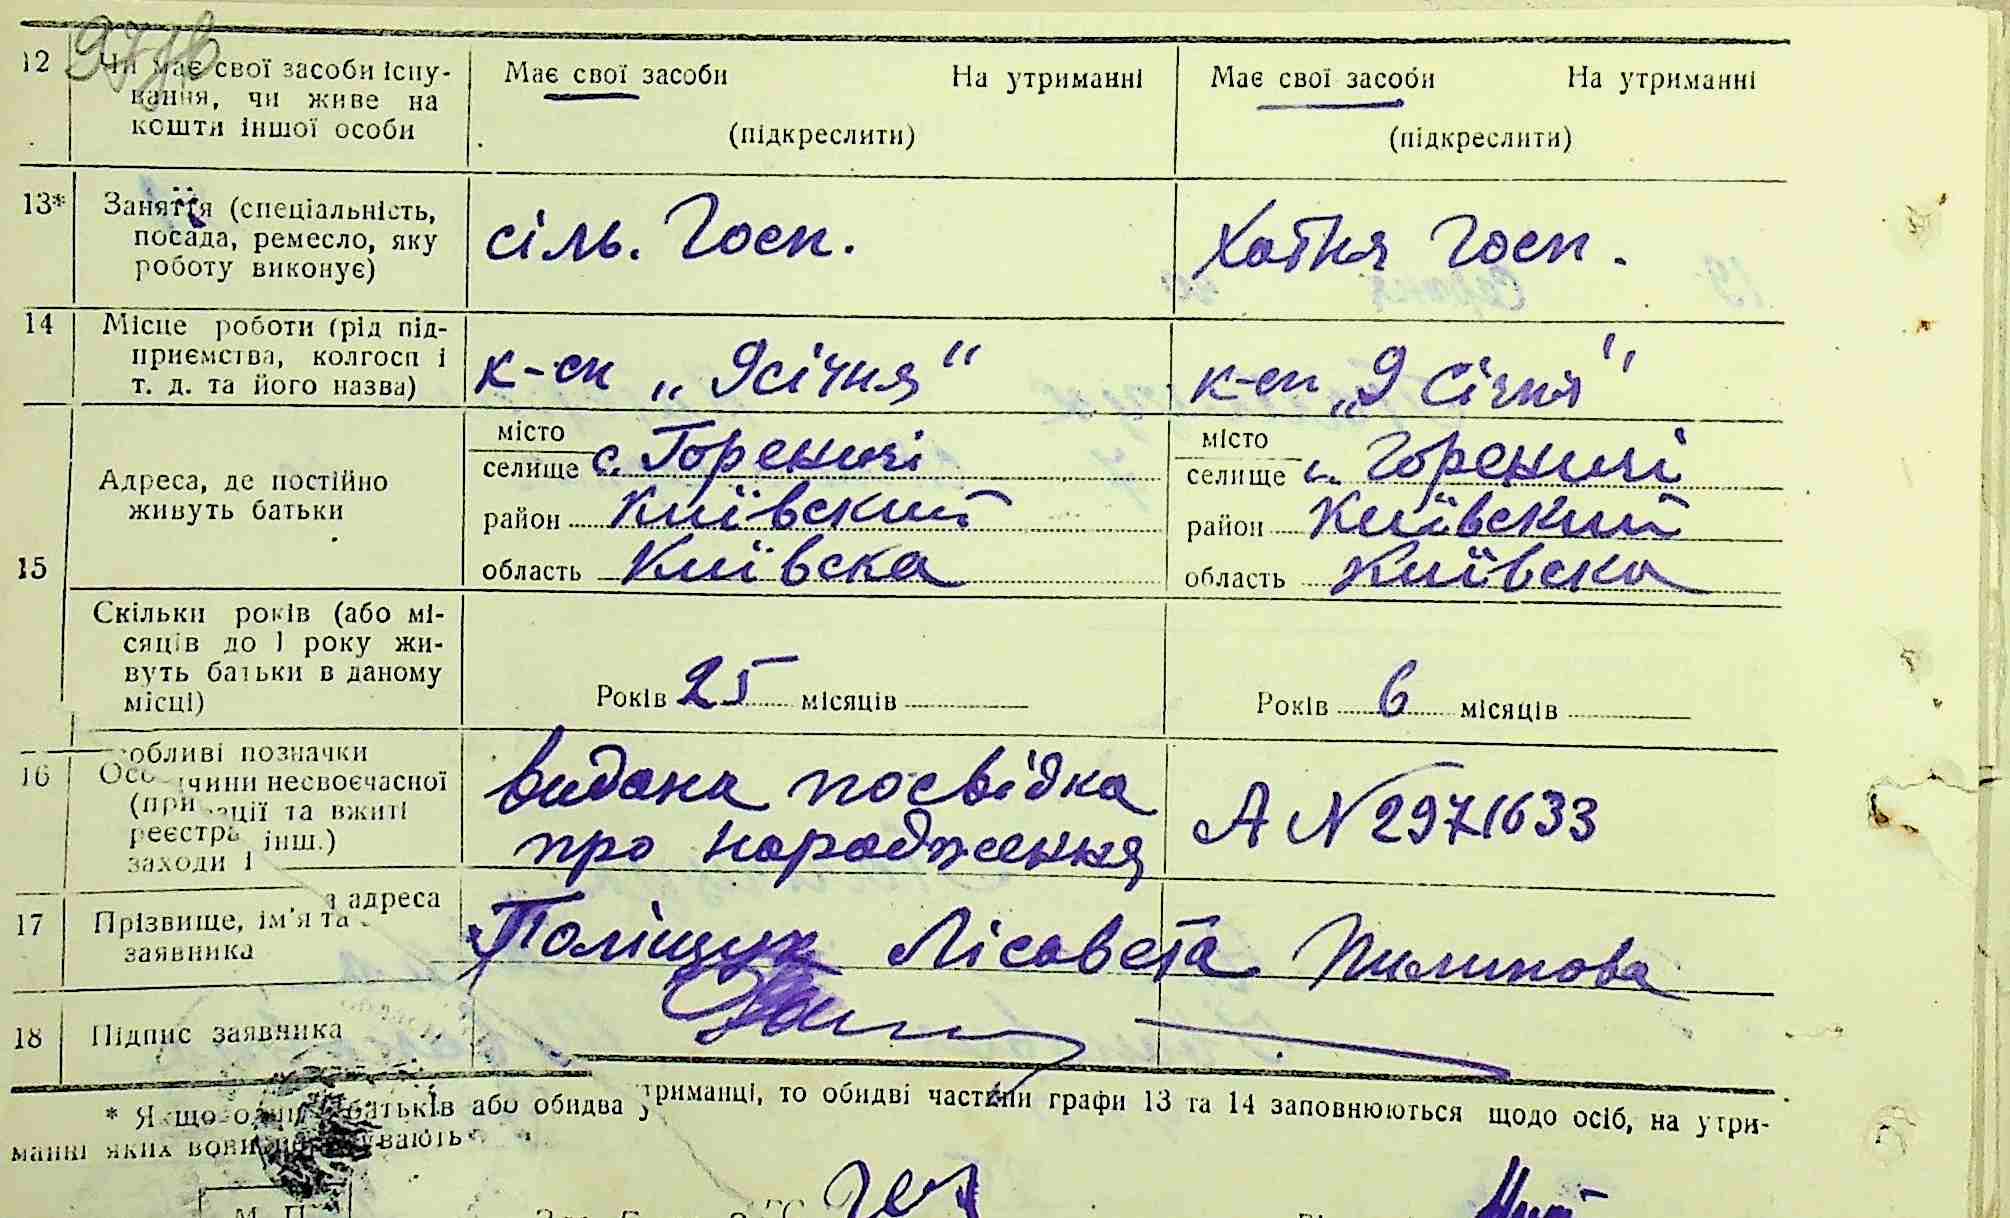 12 Чи має свої засоби існу-
вання, чи живе на
кошти іншої особи
Має свої засоби На утриманні
(підкреслити)
Має свої засоби На утриманні
(підкреслити)
13* Заняття (спеціальність,
посада, ремесло, яку
роботу виконує)
сіль. Госп.
Хатня Госп.
14 Місце роботи (рід під-
приємства, колгосп і
т. д. та його назва)
к-сп „9 січня"
к-сп „9 Січня"
15 Адреса, де постійно
живуть батьки
місто
селище с. Гореничі
район Київский
область Київска
місто
селище с. Гореничі
район Київский
область Київска
Скільки років (або мі-
сяців до 1 року жи-
вуть батьки в даному
місці)
Років 25 місяців
Років 6 місяців
16 Особливі позначки
(причини несвоєчасної
реєстрації та вжиті
заходи і інш.)
видана посвідка
про народження
А N 2971633
17 Прізвище, ім'я та адреса
заявника
Поліщук Лісавета Пилипова
18 Підпис заявника
* Якщо один з батьків або обидва утриманці, то обидві частини графи 13 та 14 заповнюються щодо осіб, на утри-
манні яких вони перебувають
М. П.